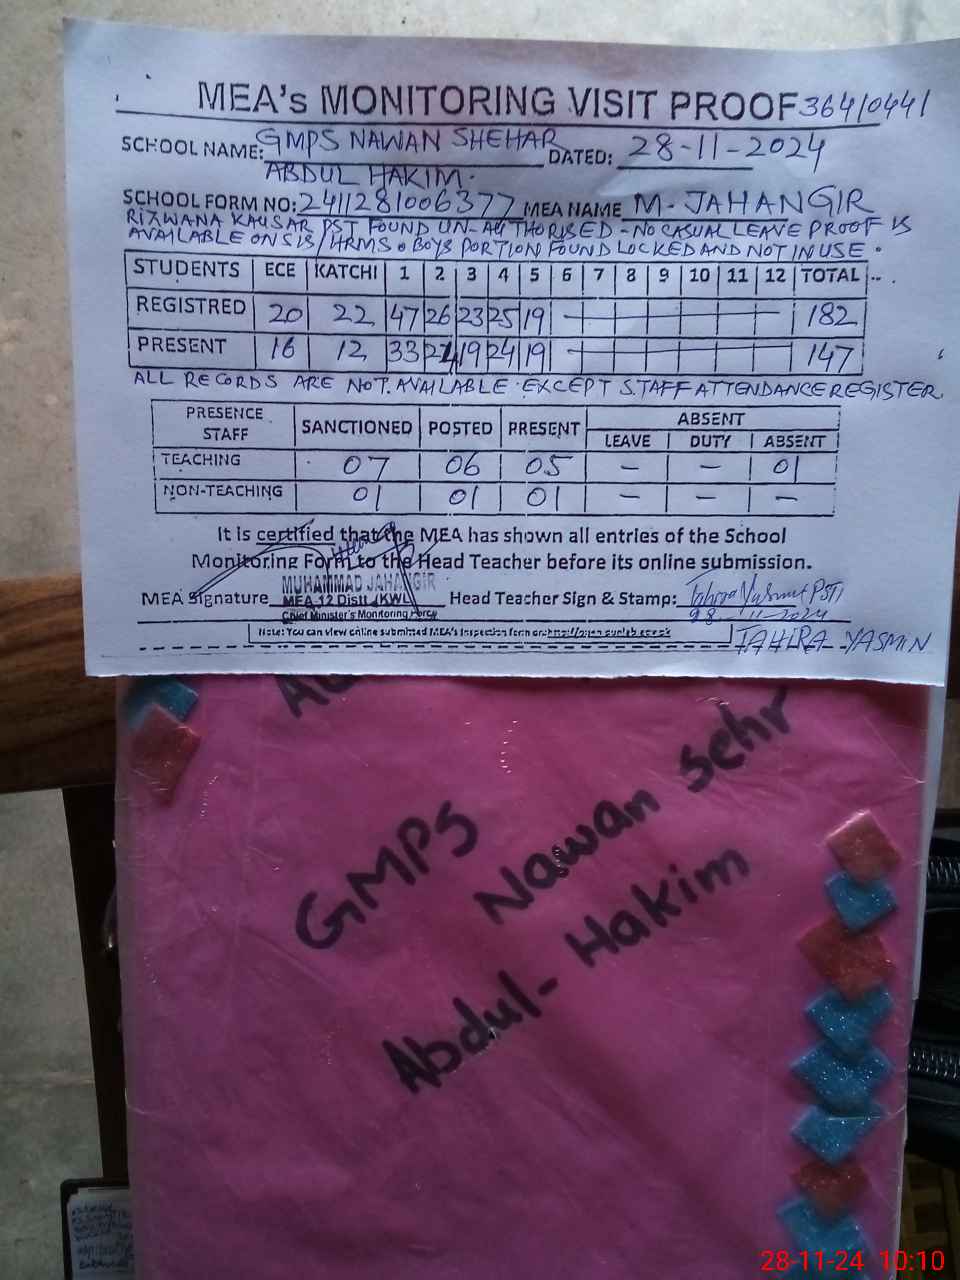 MEA's MONITORING VISIT PROOF 36410441
SCHOOL NAME: GMPS NAWAN SHEHAR DATED: 28-11-2024
ABDUL HAKIM.
SCHOOL FORM NO: 2411281006377 MEA NAME M. JAHANGIR
RIZWANA KAUSAR PST FOUND UN-AUTHORISED - NO CASUAL LEAVE PROOF IS
AVAILABLE ON SIS/HRMS. BOYS PORTION FOUND LOCKED AND NOT IN USE.
STUDENTS ECE KATCHI 1 2 3 4 5 6 7 8 9 10 11 12 TOTAL
REGISTRED 20 22 47 26 23 25 19 182
PRESENT 16 12 33 24 19 24 19 147
ALL RECORDS ARE NOT AVAILABLE EXCEPT STAFF ATTENDANCE REGISTER
PRESENCE STAFF SANCTIONED POSTED PRESENT ABSENT
LEAVE DUTY ABSENT
TEACHING 07 06 05 - - 01
NON-TEACHING 01 01 01 - - -
It is certified that the MEA has shown all entries of the School
Monitoring Form to the Head Teacher before its online submission.
MUHAMMAD JAHANGIR
MEA Signature MEA-12 Distt. KWL Head Teacher Sign & Stamp: Tahira Yasmin PST
Chief Minister's Monitoring Force 28-11-2024
Note: You can view online submitted MEA's inspection form on
TAHIRA YASMIN
GMPS
Nawan Sehr
Abdul-Hakim
28-11-24 10:10